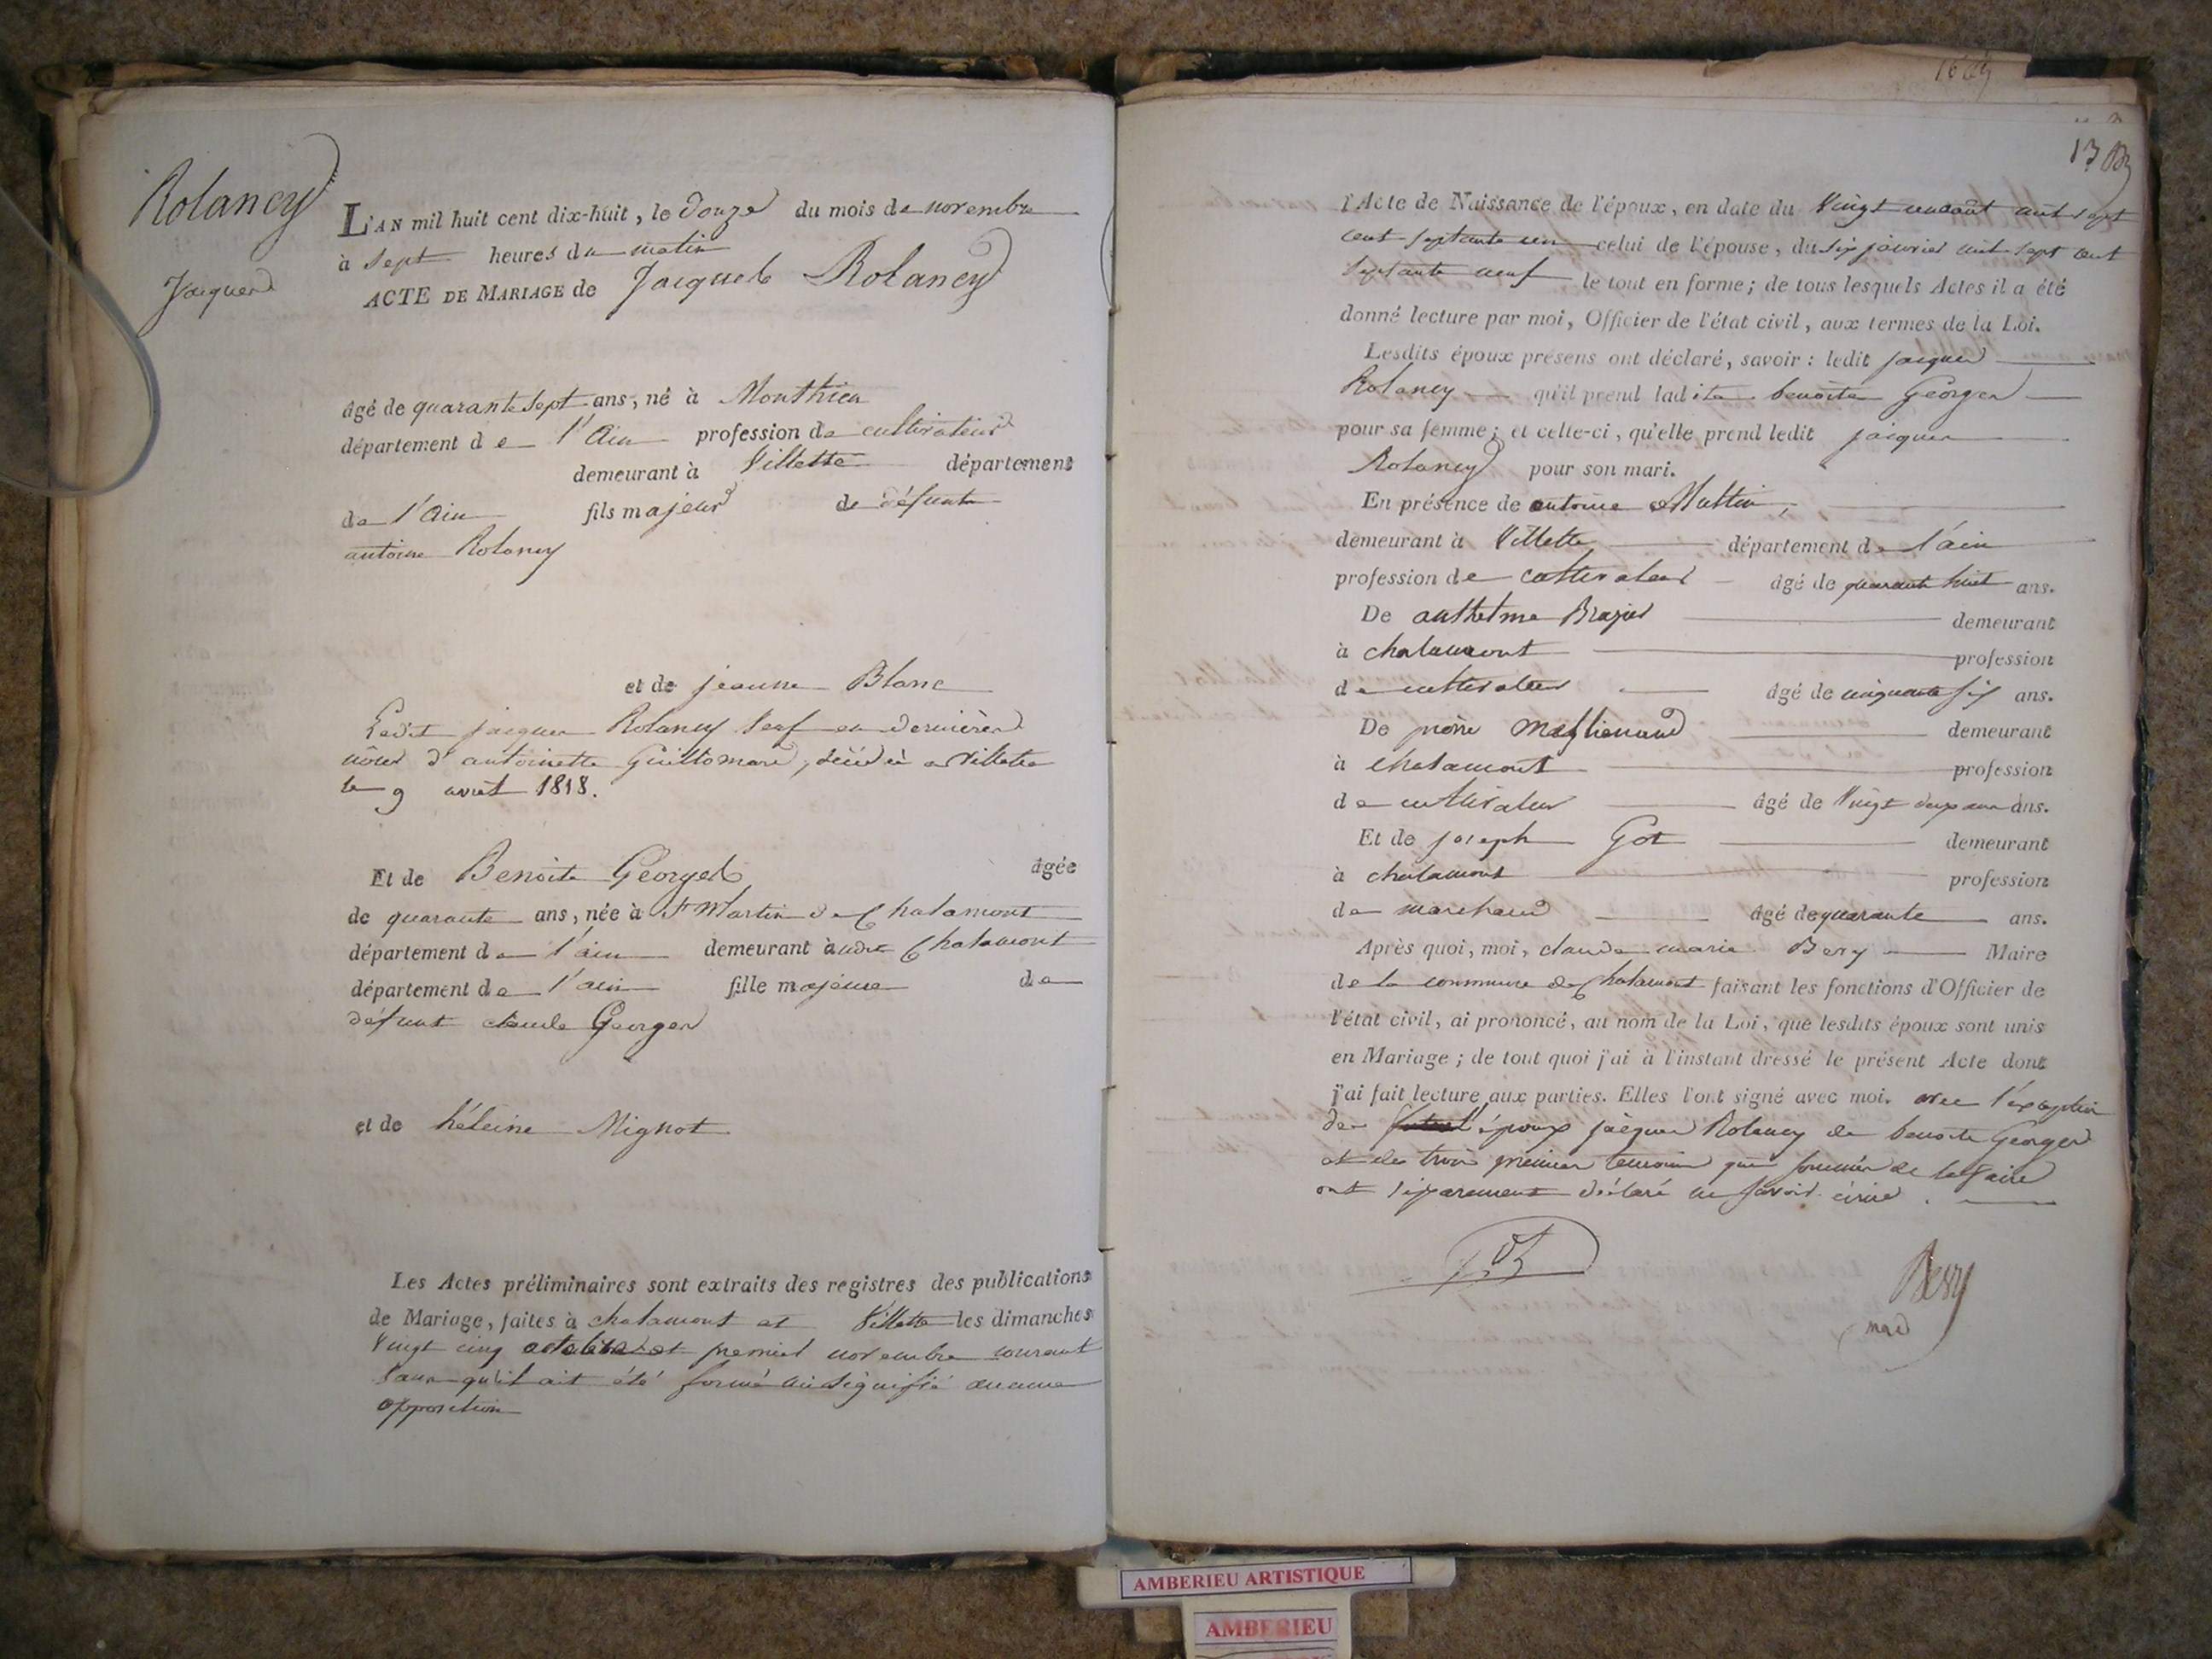 Rolancy
Jacques
L'AN mil huit cent dix-huit, le Douze du mois de novembre
à sept heures du matin
ACTE DE MARIAGE de Jacques Rolancy
âgé de quarante sept ans, né à Monthieu
département de l'Ain profession de cultivateur
demeurant à Villette département
de l'Ain fils majeur de défunt
antoine Rolancy
et de jeanne Blanc
Ledit jacques Rolancy veuf en dernières
nôces d'antoinette Guillomard, décédée à Villette
le 9 avril 1818.
Et de Benoite Georges âgée
de quarante ans, née à St Martin de Chalamont
département de l'ain demeurant audit Chalamont
département de l'ain fille majeure de
défunt claude Georges
et de héleine Mignot
Les Actes préliminaires sont extraits des registres des publications
de Mariage, faites à chalamont et Villette les dimanches
vingt cinq octobre et premier novembre courant
sans qu'il ait été formé ni signifié aucune
opposition
13
l'Acte de Naissance de l'époux, en date du vingt un août mil sept
cent septante un celui de l'épouse, du six janvier mil sept cent
septante neuf le tout en forme; de tous lesquels Actes il a été
donné lecture par moi, Officier de l'état civil, aux termes de la Loi.
Lesdits époux présens ont déclaré, savoir: ledit jacques
Rolancy qu'il prend ladite benoite Georges
pour sa femme; et celle-ci, qu'elle prend ledit jacques
Rolancy pour son mari.
En présence de antoine Muttin,
demeurant à Villette département de l'ain
profession de cultivateur âgé de quarante huit ans.
De anthelme Brazier demeurant
à chalamont profession
de cultivateur âgé de cinquante six ans.
De pierre demeurant
à chalamont profession
de cultivateur âgé de vingt deux ans ans.
Et de joseph Got demeurant
à chalamont profession
de marchand âgé de quarante ans.
Après quoi, moi, claude marie Bery Maire
de la commune de Chalamont faisant les fonctions d'Officier de
l'état civil, ai prononcé, au nom de la Loi, que lesdits époux sont unis
en Mariage; de tout quoi j'ai à l'instant dressé le présent Acte dont
j'ai fait lecture aux parties. Elles l'ont signé avec moi. avec l'exception
de l'époux jacques Rolancy de benoite Georges
et des trois premiers temoins qui sommés de le faire
ont séparement déclaré ne savoir écrire.
Bery
AMBERIEU ARTISTIQUE
AMBERIEU